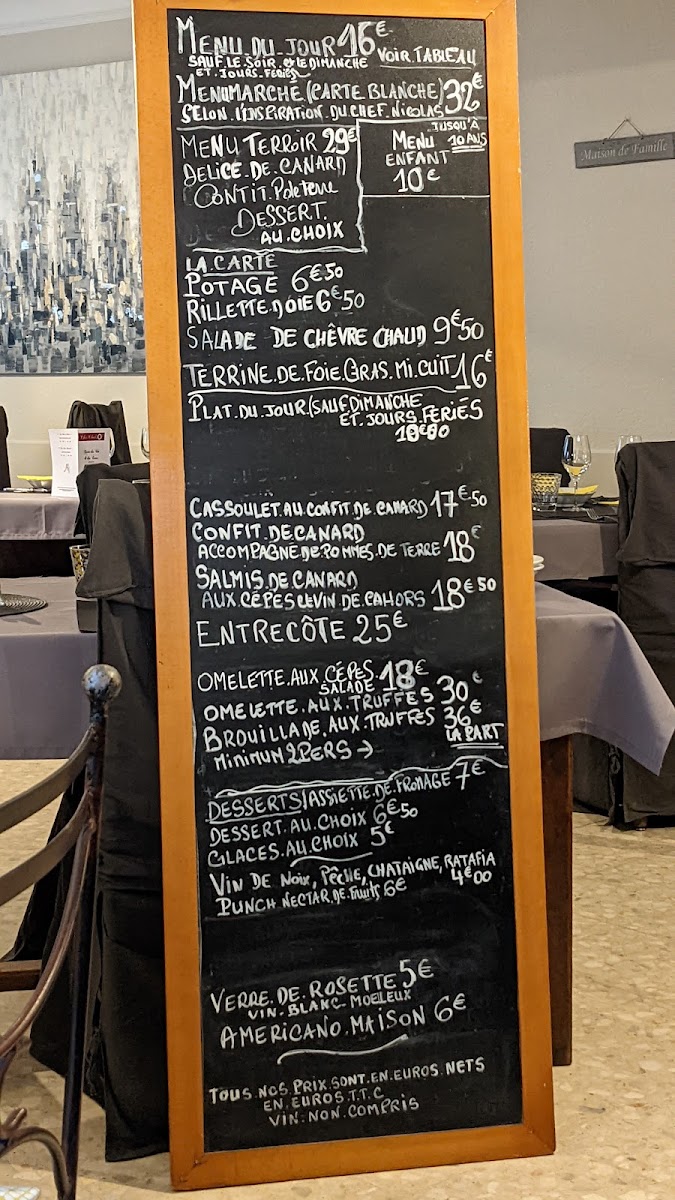 MENU DU JOUR 16€
SAUF LE SOIR et LE DIMANCHE
ET JOURS FERIES
VOIR TABLEAU
MENU MARCHE (CARTE BLANCHE) 32€
SELON L'INSPIRATION DU CHEF NICOLAS
MENU TERROIR 29€
DELICE DE CANARD
CONFIT Pole Terre
DESSERT
AU CHOIX
MENU
ENFANT
10€
JUSQU'À
10 ANS
LA CARTE
POTAGE 6€50
RILLETTE D OIE 6€50
SALADE DE CHÊVRE CHAUD 9€50
TERRINE DE FOIE GRAS MI CUIT 16€
PLAT DU JOUR (SAUF DIMANCHE
ET JOURS FERIÉS
10€00
CASSOULET AU CONFIT DE CANARD 17€50
CONFIT DE CANARD
ACCOMPAGNE DE POMMES DE TERRE 18€
SALMIS DE CANARD
AUX CÉPES LE VIN DE CAHORS 18€50
ENTRECÔTE 25€
OMELETTE AUX CÉPES 18€
SALADE
OMELETTE AUX TRUFFES 30€
BROUILLADE AUX TRUFFES 36€
MINIMUN 2 PERS →
LA PART
DESSERTS/ASSIETTE DE FROMAGE 7€
DESSERT AU CHOIX 6€50
GLACES AU CHOIX 5€
VIN DE Noix, PÊCHE, CHATAIGNE, RATAFIA
4€00
PUNCH NECTAR DE Fruits 6€
VERRE DE ROSETTE 5€
VIN BLANC MOELLEUX
AMERICANO MAISON 6€
TOUS NOS PRIX SONT EN EUROS NETS
EN EUROS T.T.C
VIN NON COMPRIS
Maison de Famille